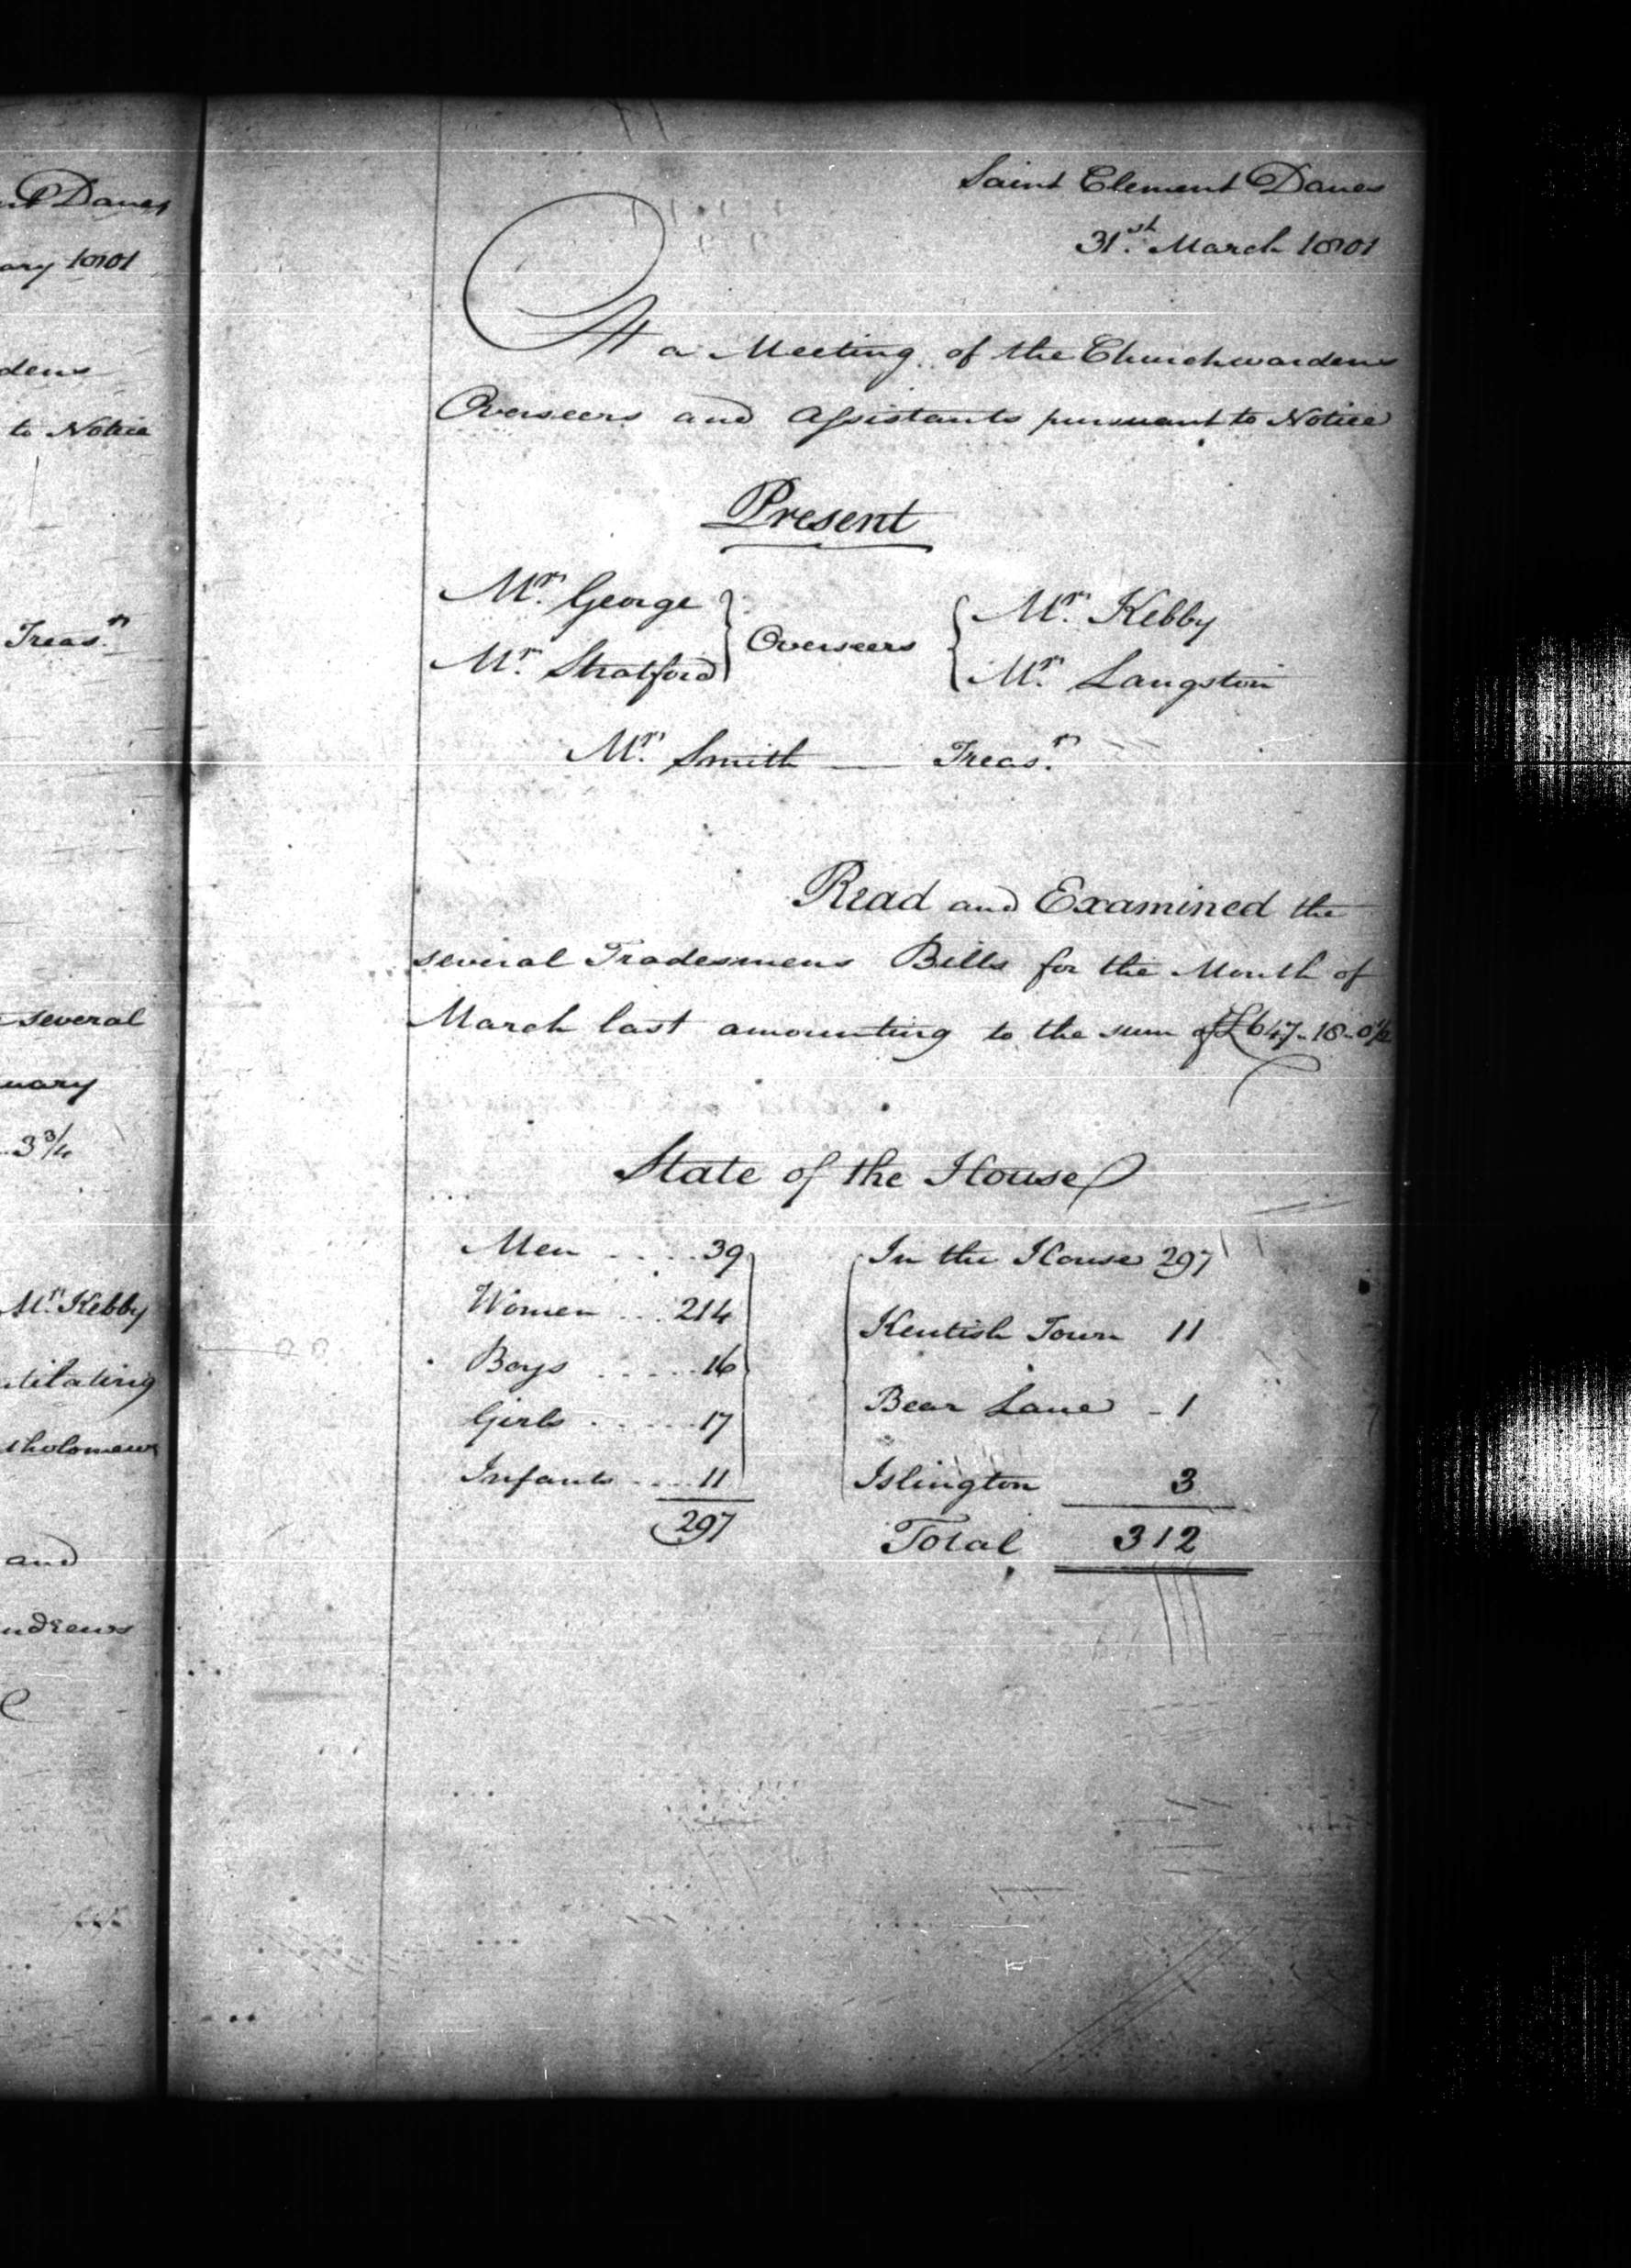 nt Danes
ary 1801
dens
to Notice
Treas.r
several
uary
3 3/4
Mr. Kebby
tilating
tholomews
and
ndrews
Saint Clement Danes
31.st March 1801
At a Meeting of the Churchwardens
Overseers and Assistants pursuant to Notice
Present
Mr. George } Overseers { Mr. Kebby
Mr. Stratford } { Mr. Langston
Mr. Smith — Treas.r
Read and Examined the
several Tradesmens Bills for the Month of
March last amounting to the sum of £647-18-0½
State of the House
Men .... 39 In the House 297
Women ... 214 Kentish Town 11
Boys ..... 16 Bear Lane - 1
Girls ..... 17 Islington 3
Infants .... 11 Total 312
297